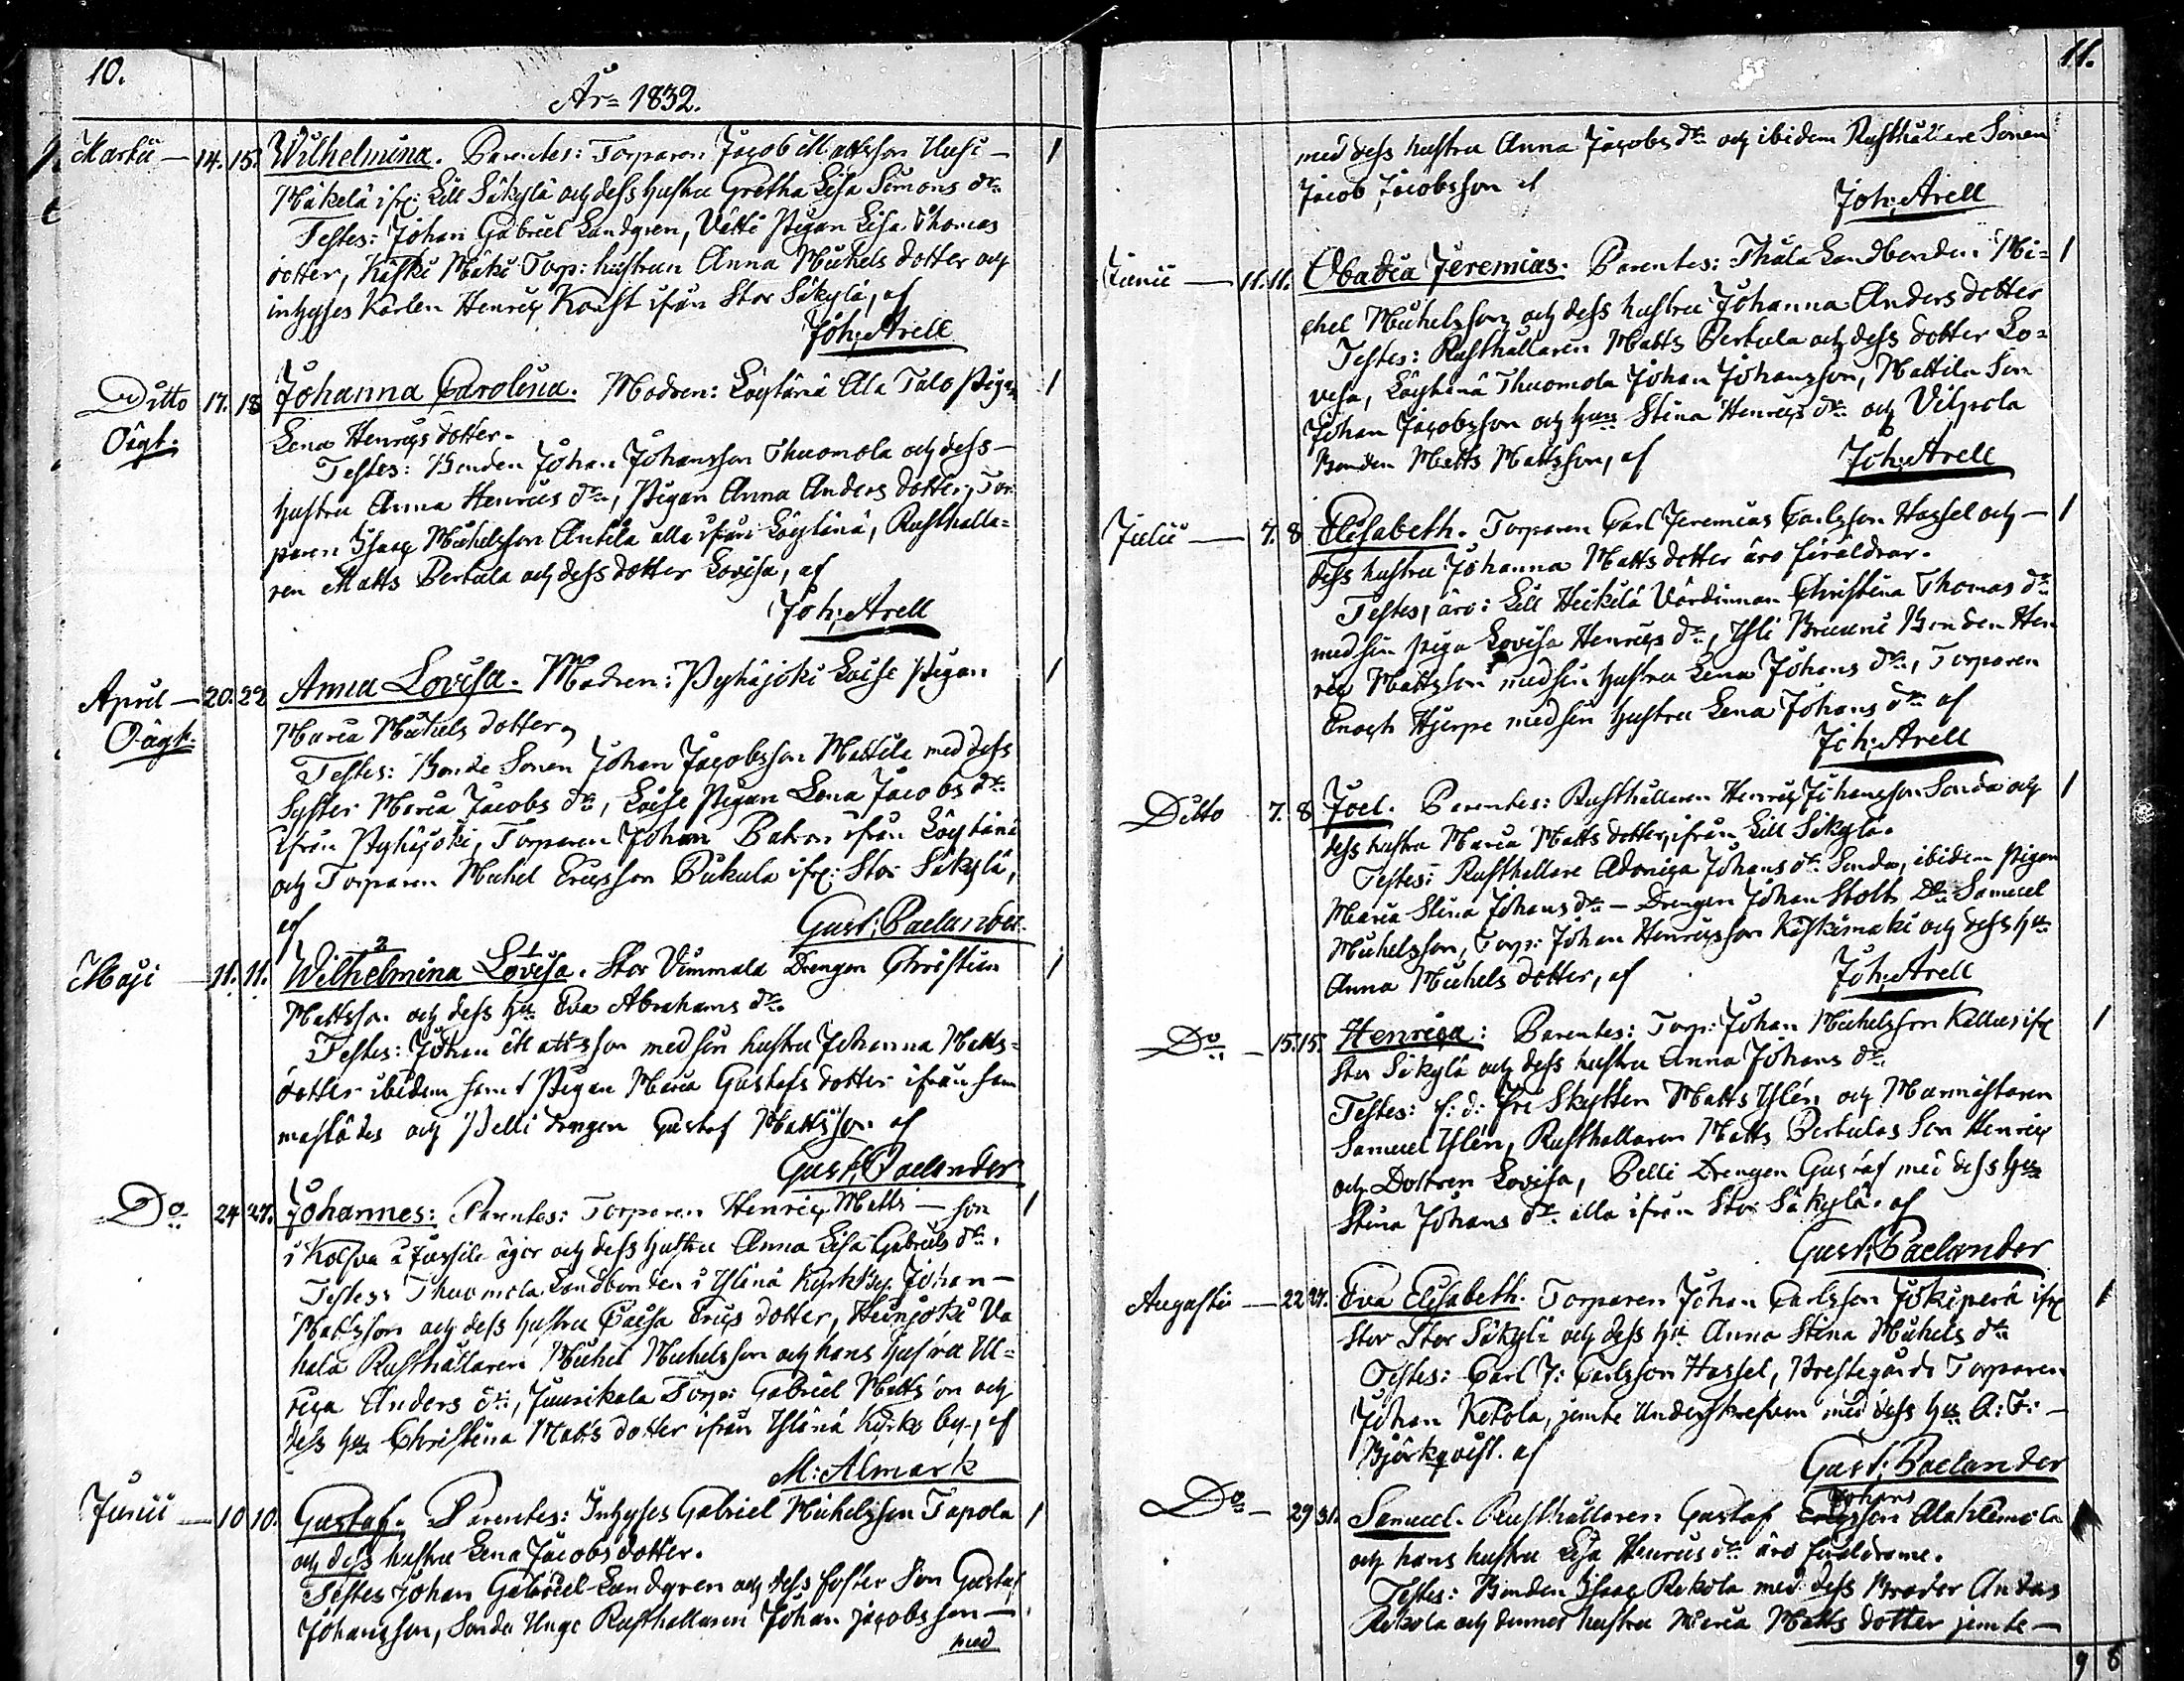 10.
År 1832.
Martii — 14. 15. Wilhelmina. Parentes: Torparen Jacob Mattsson Uusi- 1
Mäkelä ifr: Lill Säkylä och dess hustru Gretha Lisa Simons dr
Testes: Johan Gabriel Landgren, Vätti Pigan Lisa Thomas
dotter, Käski Mäki Torp: hustrun Anna Michels dotter och
inhyses Karlen Henric Kæst ifrån Stor Säkylä, af
Joh: Arell
Ditto 17. 18 Johanna Carolina. Modren: Löytäna Ala Talo Pigan 1
Oägt. Lena Henrics dotter.
Testes: Bonden Johan Johansson Thuomola och dess
hustru Anna Henrics dr, Pigan Anna Anders dotter, Tor
paren Isaac Michelsson Antila alla ifrån Löytänä, Rusthålla=
ren Matts Pertula och dess dotter Lovisa, af
Joh: Arell
April — 20. 22 Anna Lovisa. Modren: Pyhäjoki Loise Pigan 1
Oägt. Maria Michels dotter,
Testes: Bonde Sonen Johan Jacobsson Mattila med dess
Syster Maria Jacobs dr, Loise Pigan Lena Jacobs dr
ifrån Pyhäjoki, Torparen Johan Batron ifrån Löytänä
och Torparen Michel Ericsson Pukula ifr: Stor Säkylä,
af
Gust: Paelander
Maji — 11. 11. Wilhelmina Lovisa. Stor Vimmala Drengen Christian 1
2 1
Mattsson och dess hu Eva Abrahams dr
Testes: Johan Mattsson med sin hustru Johanna Matts=
dotter ibidem samt Pigan Maria Gustafs dotter ifrån sam
mastädes och Pelli drengen Gustaf Mattsson af
Gust: Paelander
Do 24 27. Johannes: Parentes: Torparen Henric Matts-son 1
i Kolsva å Jussila ägor och dess hustru Anna Lisa Gabriels dr.
Testes: Thuomola Landbonden i Yläne Kyrkby Johan
Mattsson och dess hustru Caisa Erics dotter, Heinjoki Va
hala Rusthållaren Michel Michelsson och hans hustru Ul=
rica Anders dr, Juusikala Torp: Gabriel Mattsson och
dess hu Christina Matts dotter ifrån Yläne Kyrko by, af
M: Almark
Junii — 10 10. Gustaf. Parentes: Inhyses Gabriel Michelsson Tapola 1
och dess hustru Lena Jacobsdotter.
Testes Johan Gabriel Landgren och dess foster Son Gustaf
Johansson, Sonda Unge Rusthållaren Johan Jacobsson
med
11.
med dess hustru Anna Jacobs dr och ibidem Rusthållare Sonen
Jacob Jacobsson af
Joh: Arell
Junii — 11. 11. Obadia Jeremias. Parentes: Thula Landbonden Mi= 1
chel Michelsson och dess hustru Johanna Anders dotter
Testes: Rusthållaren Matts Pertula och dess dotter Lo=
visa, Löytänä Thuomola Johan Johansson, Mattila Son
Johan Jacobsson och hus Stina Henrics dr och Vilpola
Bonden Matts Mattsson, af
Joh: Arell
Julii — 7. 8 Elisabeth. Torparen Carl Jeremias Carlsson Hassel och 1
dess hustru Johanna Matts dotter äro föräldrar.
Testes, äro: Lill Heikilä Värdinnan Christina Thomas dr
med sin piga Lovisa Henrics dr, Yli Bruuni Bonden Hen
ric Mattsson med sin hustru Lena Johans dr, Torparen
Enoch Hjerpe med sin hustru Lena Johans dr af
Joh: Arell
Ditto 7. 8 Joel. Parentes: Rusthållaren Henric Johansson Sonda och 1
dess hustru Maria Matts dotter, ifrån Lill Säkylä.
Testes: Rusthållare Adoniga Johans dr Sonda, ibidem Pigan
Maria Stina Johans dr — Drengen Johan Stolt Do Samuel
Michelsson, Torp: Johan Henricsson Käskimäki och dess hu
Anna Michels dotter, af
Joh: Arell
Do — 15. 15. Henrica: Parentes: Torp: Johan Michelsson Kallus ifr 1
Stor Säkylä och dess hustru Anna Johans dr
Testes: f: d: Fri Skytten Matts Ylén och Murmästaren
Samuel Ylén, Rusthållaren Matts Pertulas Son Henric
och Dottren Lovisa, Pelli Drengen Gustaf med dess hu
Stina Johans dr alla ifrån Stor Säkylä. af
Gust: Paelander
Augusti — 22 27. Eva Elisabeth. Torparen Johan Carlsson Jokiperä ifr 1
Stor Stor Säkylä och dess hu Anna Stina Michels dr
Testes: Carl J: Carlsson Hassel, Prestegårds Torparen
Johan Ketola, jemte Underskrefven med dess hu A: F:
Björkqvist. af
Gust: Paelander
Do — 29 31. Samuel. Rusthållaren Gustaf Ericsson Alahlemola
Johans
och hans hustru Lisa Henrics dr äro föräldrarne.
Testes: Bonden Isaac Rekola med dess Broder Anders
Rekola och dennes hustru Maria Matts dotter jemte
9 8